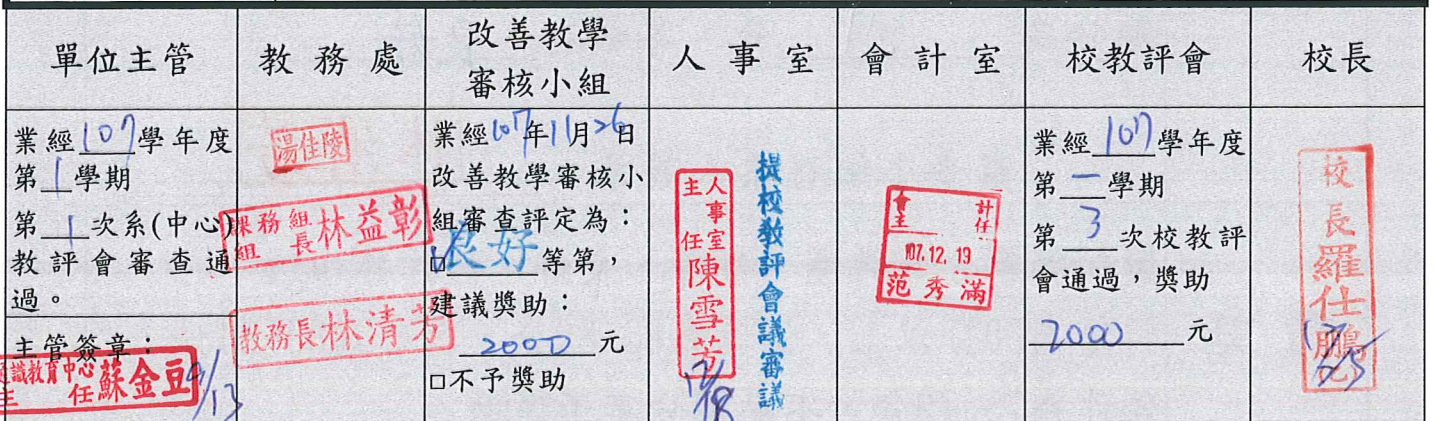 單位主管
教務處
改善教學
審核小組
人事室
會計室
校教評會
校長
業經107學年度
第1學期
第1次系(中心)
教評會審查通
過。
主管簽章:
通識教育中心
主任蘇金豆
9/13
湯佳陵
課務組
組長林益彰
教務長林清芳
業經107年11月26日
改善教學審核小
組審查評定為:
良好等第,
建議獎助:
2000元
□不予獎助
人事室
主任陳雪芳
12/18
提校教評會議審議
會計
主任
107.12.19
范秀滿
業經107學年度
第一學期
第3次校教評
會通過,獎助
2000元
校長羅仕鵬